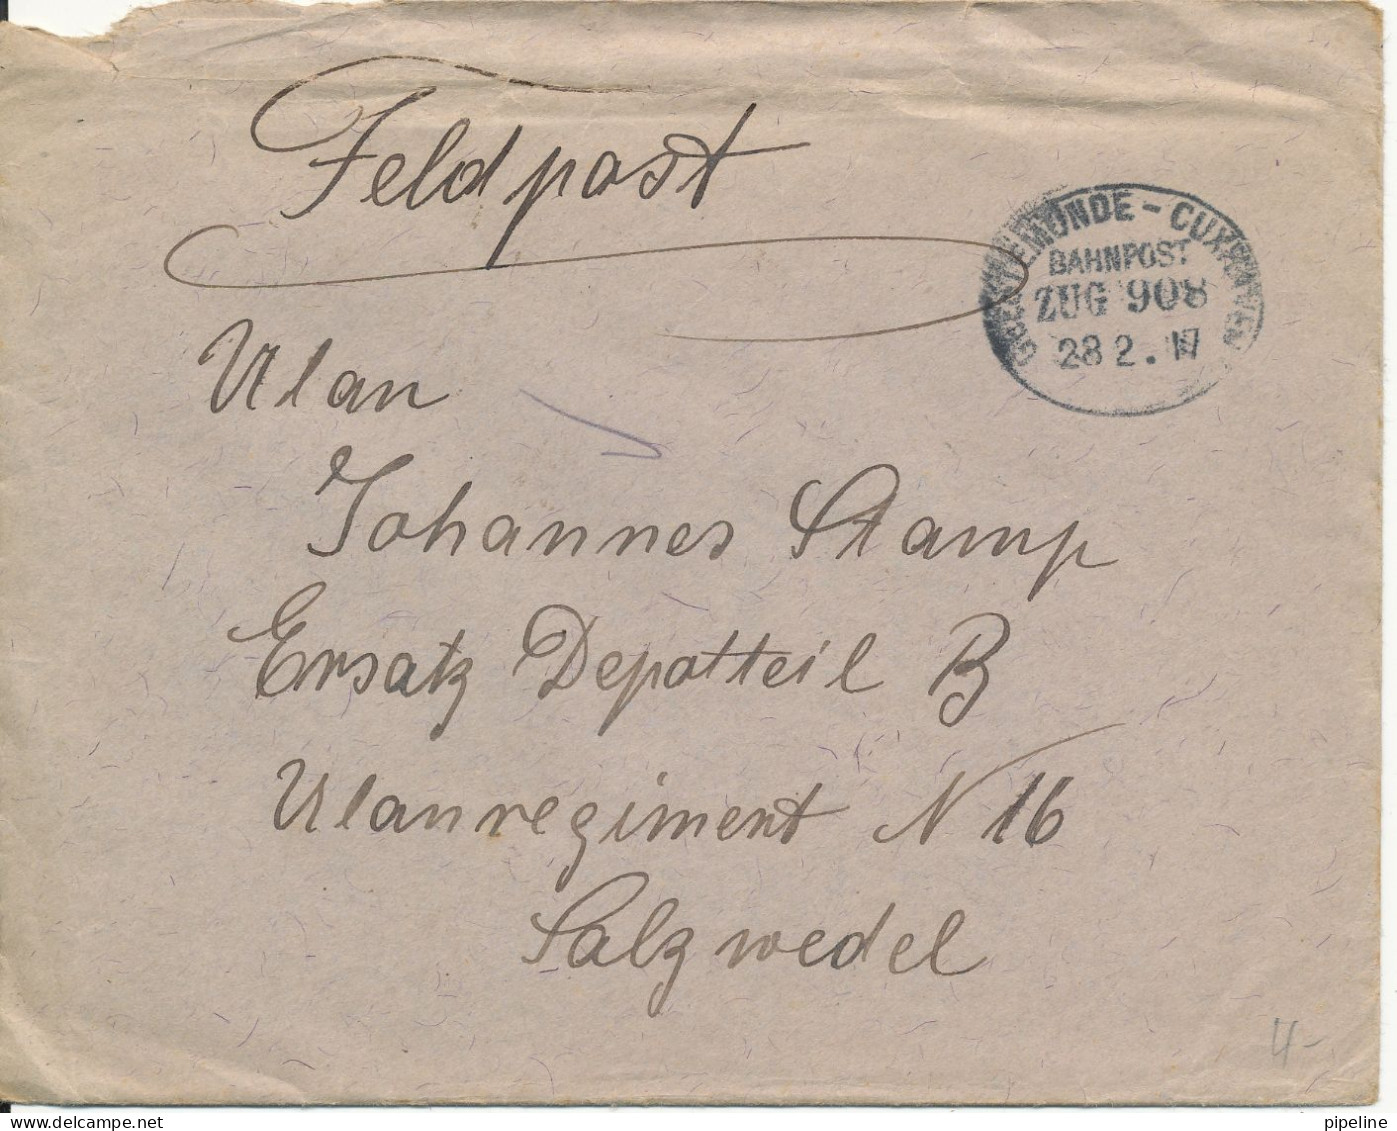 Feldpost
GEESTEMÜNDE - CUXHAVEN
BAHNPOST
ZUG 908
28 2. 17
Ulan
Johannes Stamp
Ersatz Depotteil B
Ulanregiment N 16
Salzwedel
4-
www.delcampe.net
pipeline